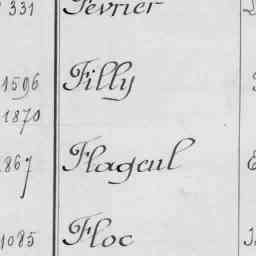 331 Février
1596 Filly
1870
867 Flageul
1085 Floc